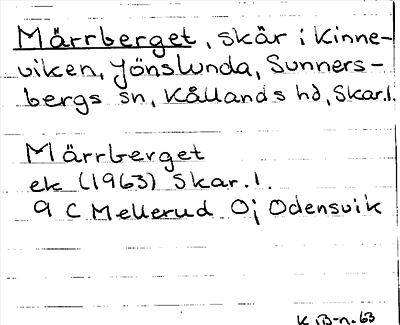 Märrberget, skär i Kinne-
viken, Jönslunda, Sunners-
bergs sn, Kållands hd, Skar.l.
Märrberget
ek (1963) Skar.l.
9 C Mellerud 0j Odensvik
K B-n.63